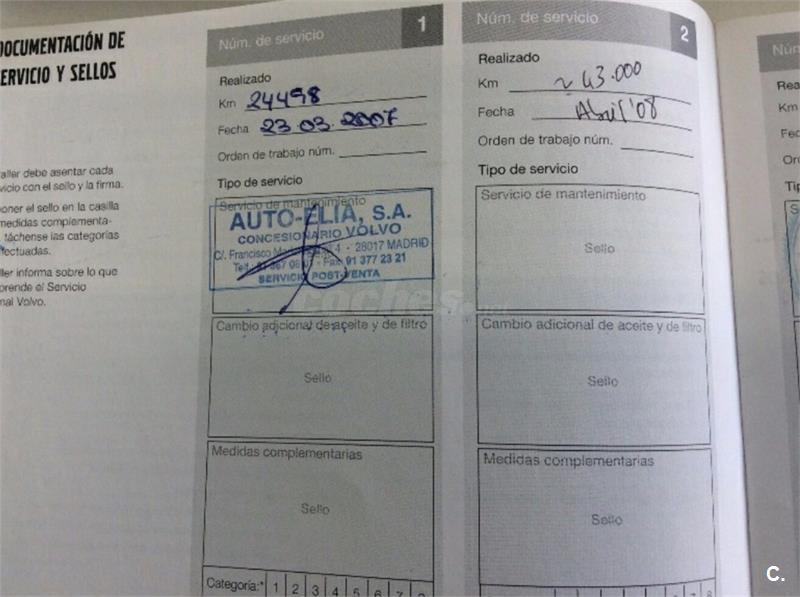 DOCUMENTACIÓN DE
SERVICIO Y SELLOS
aller debe asentar cada
vicio con el sello y la firma.
oner el sello en la casilla
medidas complementa-
táchense las categorías
fectuadas.
ller informa sobre lo que
prende el Servicio
nal Volvo.
Núm. de servicio 1
Realizado
Km 24498
Fecha 23 03. 2007
Orden de trabajo núm.
Tipo de servicio
Servicio de mantenimiento
AUTO-ELIA, S.A.
CONCESIONARIO VOLVO
C/. Francisco 4 - 28017 MADRID
Fax 91 377 23 21
SERVICIO POST-VENTA
Cambio adicional de aceite y de filtro
Sello
Medidas complementarias
Sello
Categoría:* 1 2 3 4 5 6 7 8
Núm. de servicio 2
Realizado
Km ~ 43.000
Fecha Abril '08
Orden de trabajo núm.
Tipo de servicio
Servicio de mantenimiento
Sello
Cambio adicional de aceite y de filtro
Sello
Medidas complementarias
Sello
Núm
Rea
Km
Fec
Ord
Tip
S
coches.net
C.